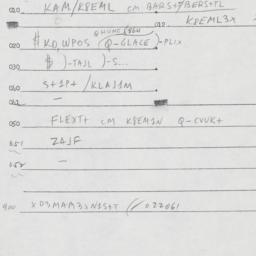 010 KAM/KREML CM BARS+/BERS+L
012 KREML3X
020 #KD,WPOS (Q-GLACE)-PLIX
030 $ )-TAJL )-S...
040 S+1P+ /KLAJ1M
042 —
050 FLEXT+ CM KREM1N Q-CVUK+
051 Z4JF
052 —
900 XD3MAM3XN1S+T // 022061